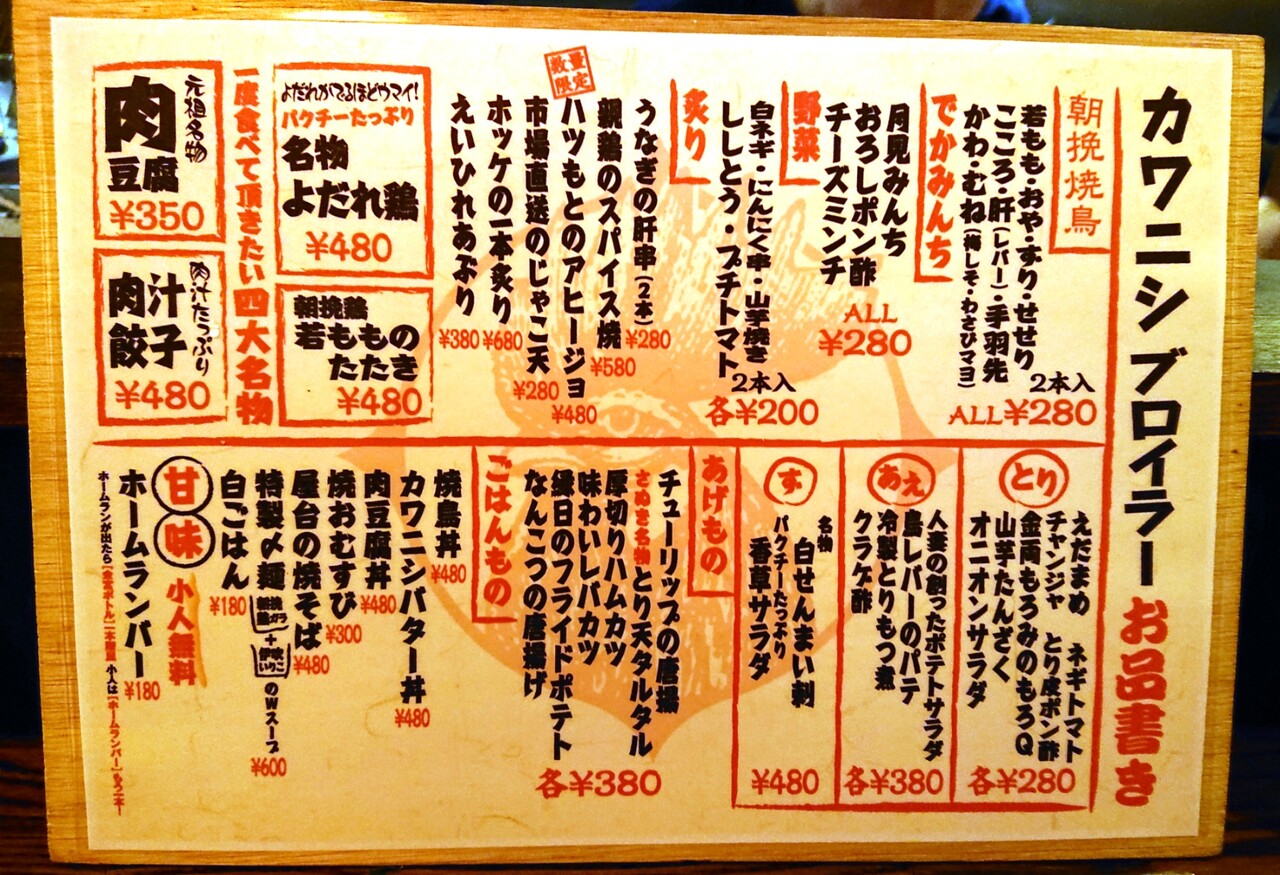 カワニシブロイラー お品書き
朝挽焼鳥
若もも・おや・ずり・せせり
こころ・肝(レバー)・手羽先
かわ・むね(梅しそ・わさびマヨ)
2本入
ALL¥280
でかみんち
月見みんち
おろしポン酢
チーズミンチ
ALL
¥280
野菜
白ネギ・にんにく串・山芋焼き
ししとう・プチトマト
2本入
各¥200
炙り
うなぎの肝串(2本)
¥280
親鶏のスパイス焼
¥580
数量限定
ハツもとのアヒージョ
¥480
市場直送のじゃこ天
¥280
ホッケの一本炙り
¥680
えいひれあぶり
¥380
よだれがでるほどウマイ!
パクチーたっぷり
名物
よだれ鶏
¥480
朝挽鶏
若ももの
たたき
¥480
一度食べて頂きたい四大名物
元祖名物
肉
豆腐
¥350
肉汁たっぷり
肉汁
餃子
¥480
とり
えだまめ ネギトマト
チャンジャ とり皮ポン酢
金両もろみのもろQ
山芋たんざく
オニオンサラダ
各¥280
あえ
人妻の創ったポテトサラダ
鳥レバーのパテ
冷製とりもつ煮
クラゲ酢
各¥380
す
名物
白せんまい刺
パクチーたっぷり
香草サラダ
¥480
あげもの
チューリップの唐揚
さぬき名物とり天タルタル
厚切りハムカツ
味わいレバカツ
縁日のフライドポテト
なんこつの唐揚げ
各¥380
ごはんもの
焼鳥丼
¥480
カワニシバター丼
¥480
肉豆腐丼
¥480
焼おむすび
¥300
屋台の焼そば
¥480
特製〆麺
朝挽鶏ガラ+伊吹いりこのWスープ
¥600
白ごはん
¥180
甘味
小人無料
ホームランバー
¥180
ホームランが出たら「金宮ボトル」一本贈呈 小人は「ホームランバー」もう一本!